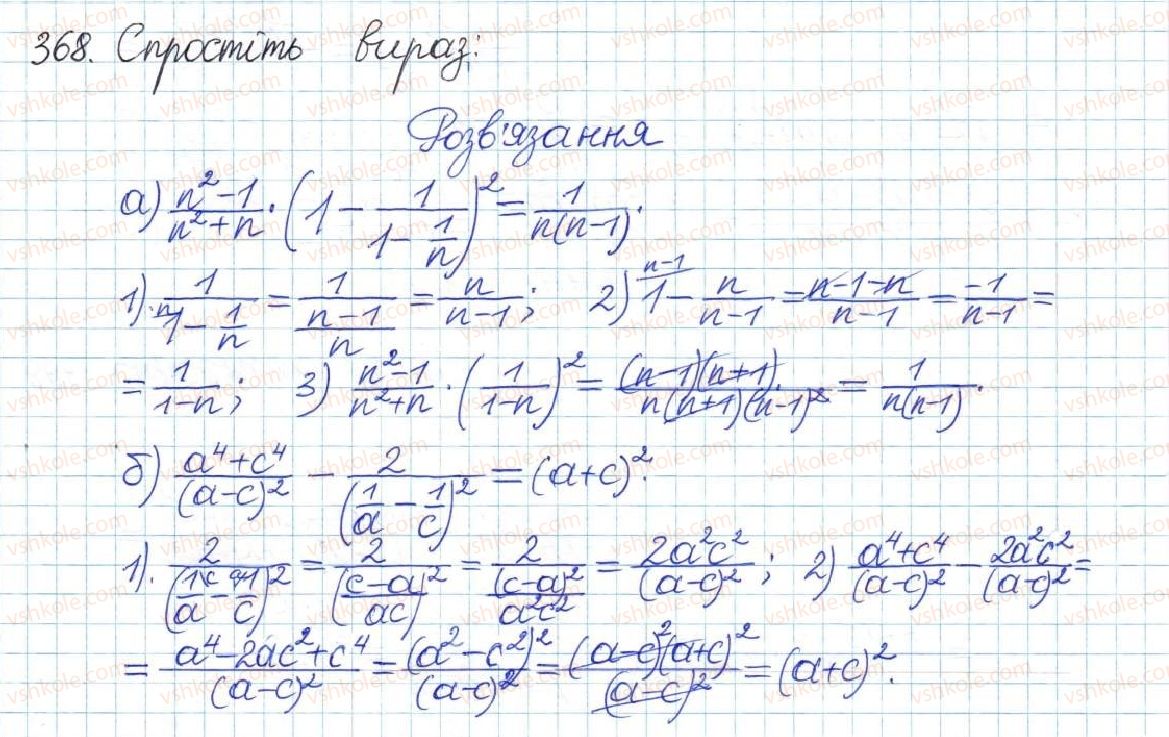 368. Спростіть вираз:
Розв'язання
а) \frac{n^2-1}{n^2+n} \cdot \left(1-\frac{1}{1-\frac{1}{n}}\right)^2 = \frac{1}{n(n-1)}.
1). \frac{1}{1-\frac{1}{n}} = \frac{1}{\frac{n-1}{n}} = \frac{n}{n-1}; 2) 1^{n-1} - \frac{n}{n-1} = \frac{n-1-n}{n-1} = \frac{-1}{n-1} =
= \frac{1}{1-n}; 3) \frac{n^2-1}{n^2+n} \cdot \left(\frac{1}{1-n}\right)^2 = \frac{(n-1)(n+1)}{n(n+1)(n-1)^2} = \frac{1}{n(n-1)}.
б) \frac{a^4+c^4}{(a-c)^2} - \frac{2}{\left(\frac{1}{a}-\frac{1}{c}\right)^2} = (a+c)^2.
1). \frac{2}{\left(\frac{1}{a}-\frac{1}{c}\right)^2} = \frac{2}{\left(\frac{c-a}{ac}\right)^2} = \frac{2}{\frac{(c-a)^2}{a^2c^2}} = \frac{2a^2c^2}{(a-c)^2}; 2) \frac{a^4+c^4}{(a-c)^2} - \frac{2a^2c^2}{(a-c)^2} =
= \frac{a^4-2ac^2+c^4}{(a-c)^2} = \frac{(a^2-c^2)^2}{(a-c)^2} = \frac{(a-c)^2(a+c)^2}{(a-c)^2} = (a+c)^2.
vshkole.com